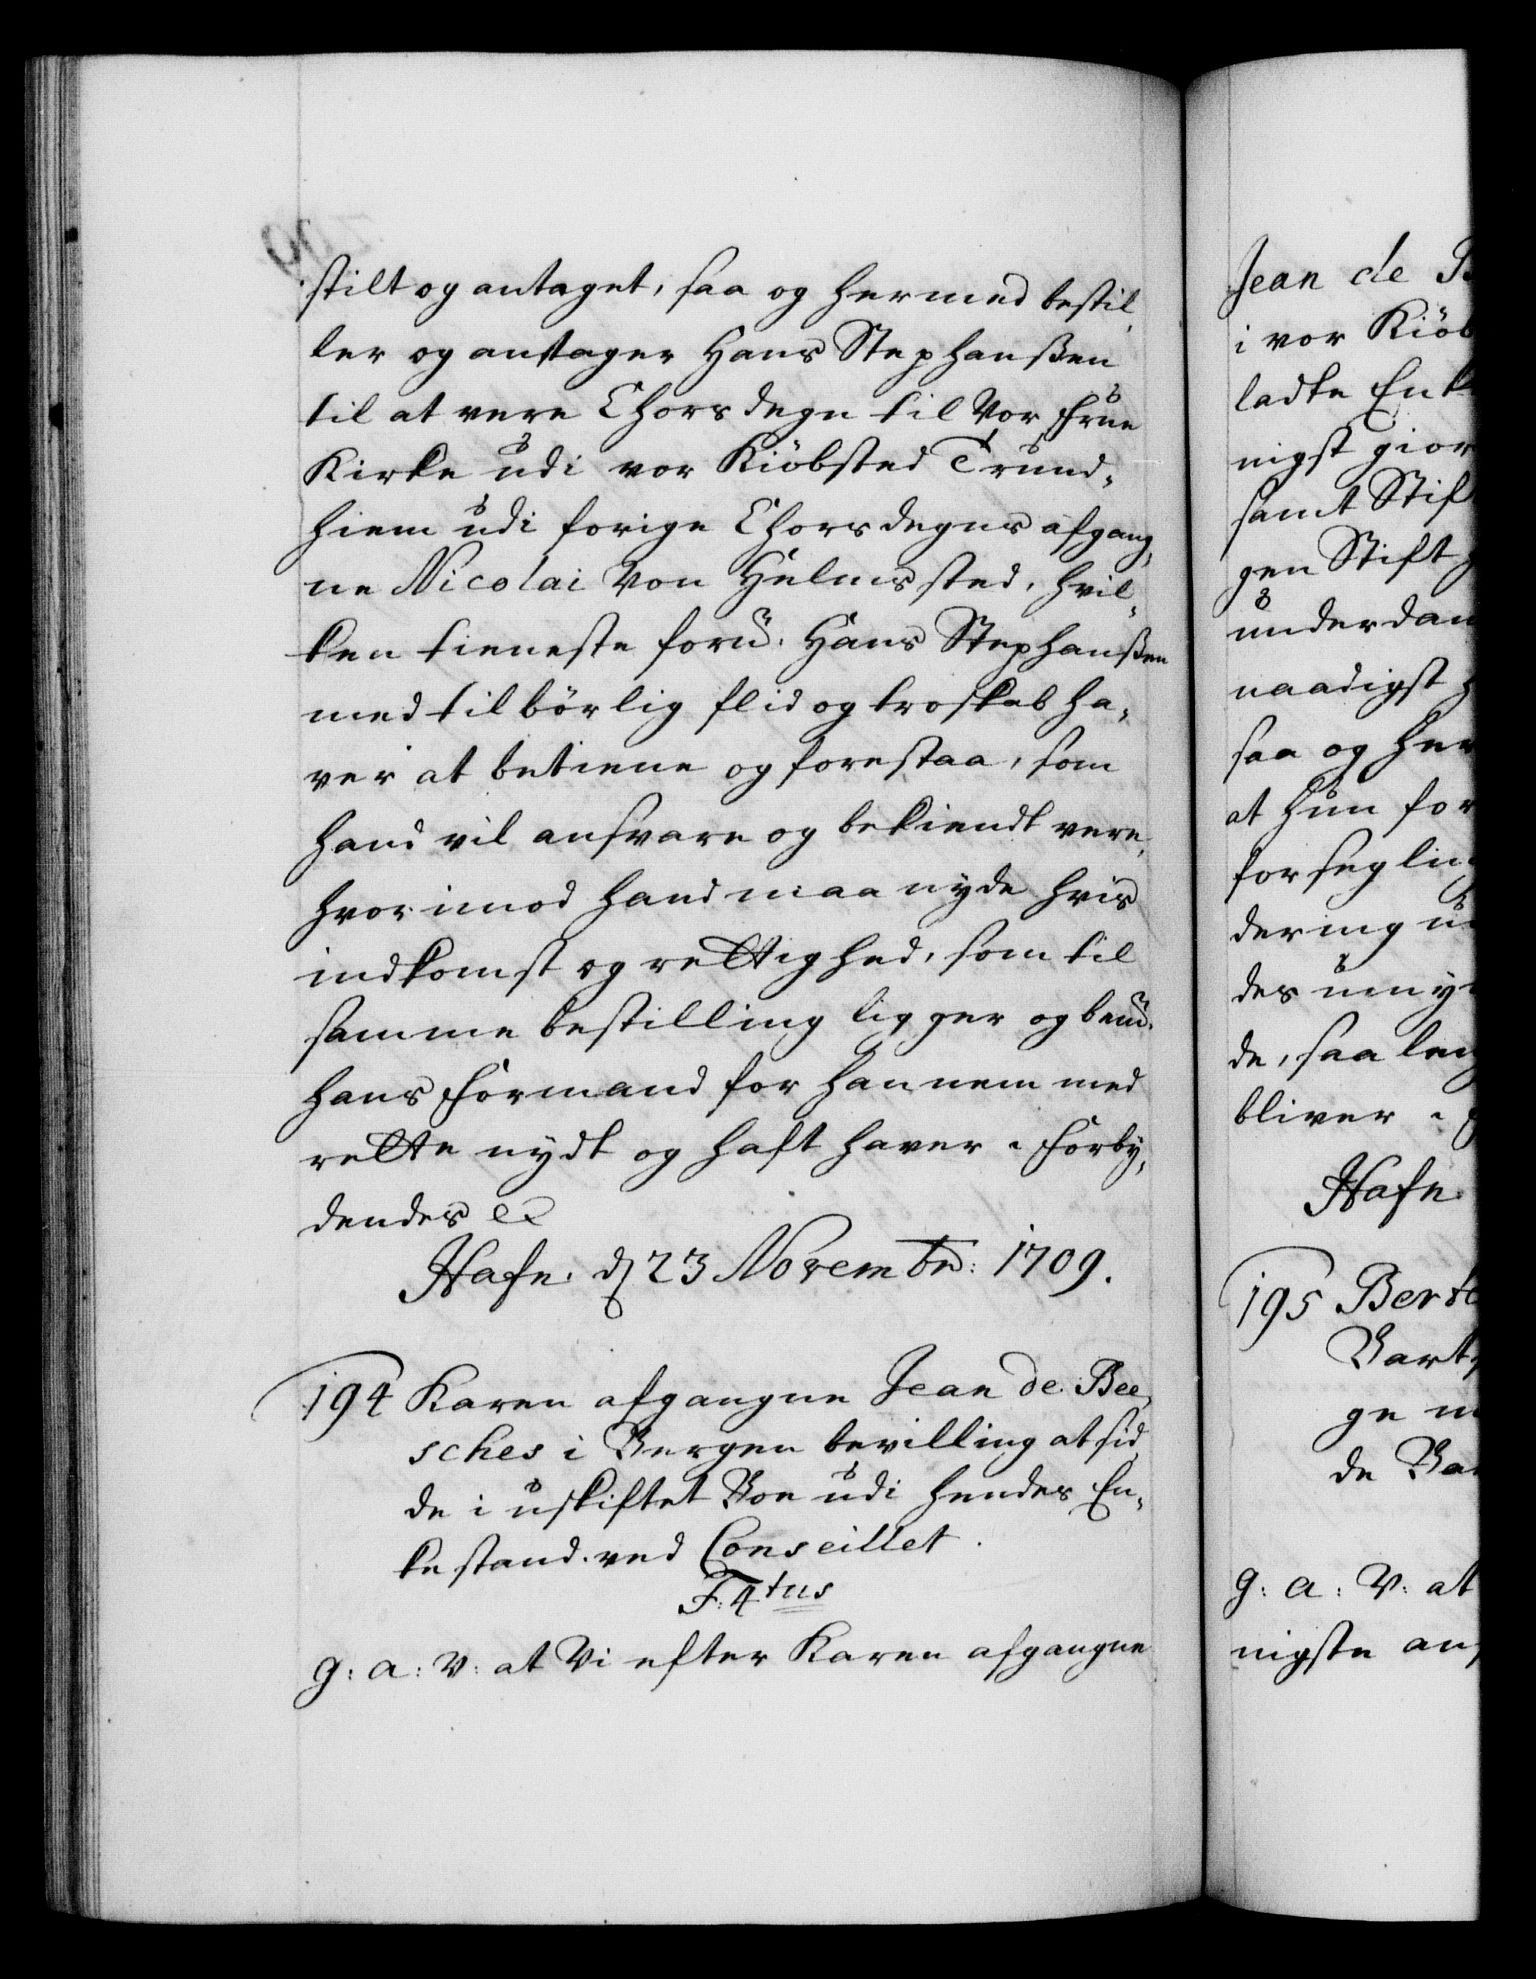 stilt og antaget, saa og hermed bestil,
ler og antager Hans Stephanßen
til at vere Chorsdegn til Vor Frue
Kirke udi vor Kiöbsted Trund,
hiem udi forige Chorsdegns afgang,
ne Nicolai von Helmssted, hvil,
ken tieneste forn: Hans Stephanßen
med tilbörlig flid og troskab ha,
ver at betiene og forestaa, som
hand vil ansvare og bekiendt vere,
hvorimod hand maa nyde hvis
indkomst og rettighed, som til
samme bestilling ligger og bem:
hans Formand for hannem med
rette nydt og haft haver. Forby,
dendes &
Hafn: d 23 Novembr: 1709.
194 Karen afgangne Jean de Bee,
sches i Bergen bevilling at sid
de i uskiftet Boe udi hendes En,
kestand. ved Conseillet.
F: 4tus
G: A: V: at Vi efter Karen afgangne
Jean de
i vor
ladte
nigst
samt
gen Stift
underdan
naadigst
saa og
at hun for
forseglin
dering
des umy
de, saa
bliver.
Hafn:
195
ge
de
G: A: V: at
nigste